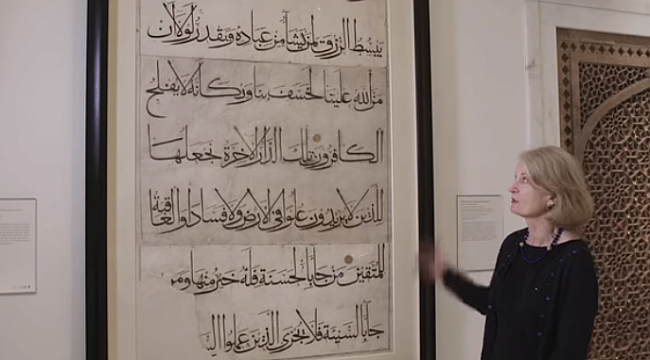 يبسط الرزق لمن يشا من عباده ويقدر لولا ان
من الله علينا لخسف بنا ويكانه لا يفلح
الكافرون تلك الدار الاخرة نجعلها
للذين لا يريدون علوا في الارض ولا فسادا والعاقبة
للمتقين من جا بالحسنة فله خير منها ومن
جا بالسيئة فلا يجزى الذين عملوا